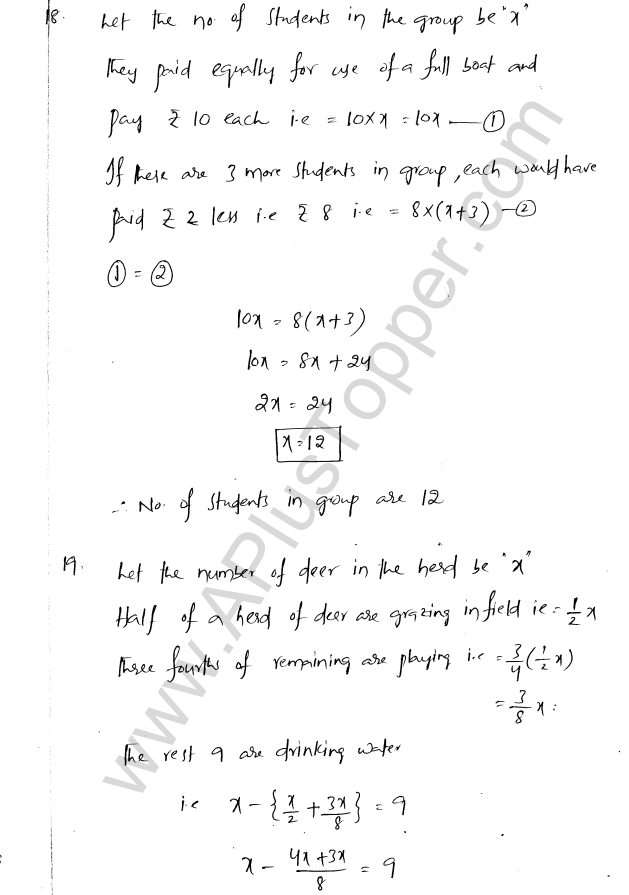 18. Let the no. of students in the group be "x"
they paid equally for use of a full boat and
pay ₹ 10 each i.e = 10×x = 10x — ①
If there are 3 more students in group, each would have
paid ₹ 2 less i.e ₹ 8 i.e = 8×(x+3) — ②
① = ②
10x = 8(x+3)
10x = 8x + 24
2x = 24
x = 12
∴ No. of students in group are 12
19. Let the number of deer in the herd be "x"
Half of a herd of deer are grazing in field ie = 1/2 x
Three fourths of remaining are playing i.e = 3/4 (1/2 x)
= 3/8 x.
The rest 9 are drinking water
i.e x - {x/2 + 3x/8} = 9
x - (4x+3x)/8 = 9
www.APlusTopper.com